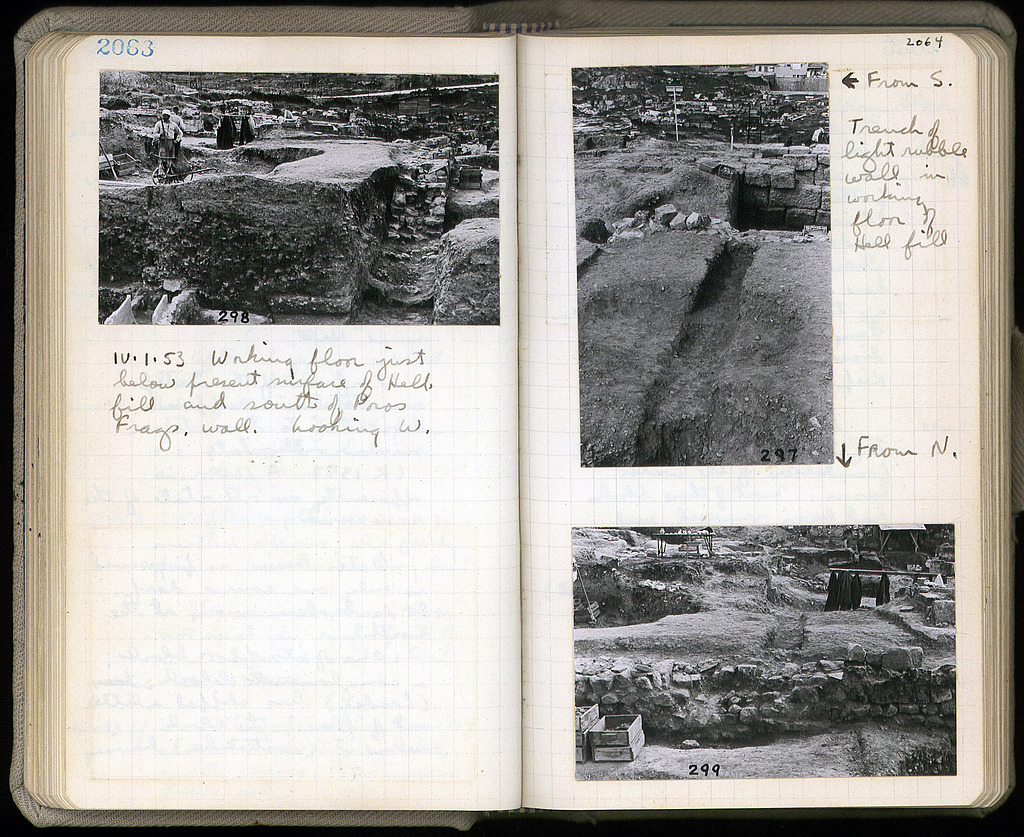 2063
298
IV.1.53 Working floor just
below present surface of Hell.
fill and south of Poros
Frags. wall. Looking W.
2064
← From S.
Trench of
light rubble
wall in
working
floor of
Hell fill
297
↓ From N.
299